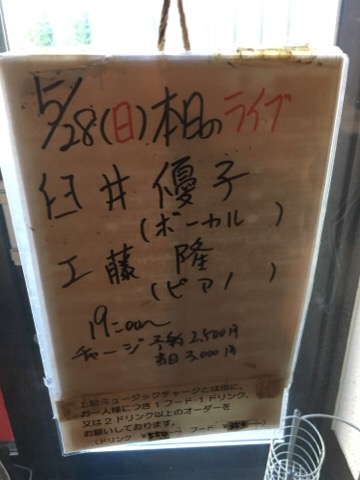 5/28(日)本日のライブ
臼井 優子
(ボーカル)
工藤 隆
(ピアノ)
19:00〜
チャージ 予約 2,500円
当日 3,000円
上記ミュージックチャージとは別に、
お一人様につき1フード・1ドリンク、
又は2ドリンク以上のオーダーを
お願いしております。
(ドリンク ¥550〜 フード